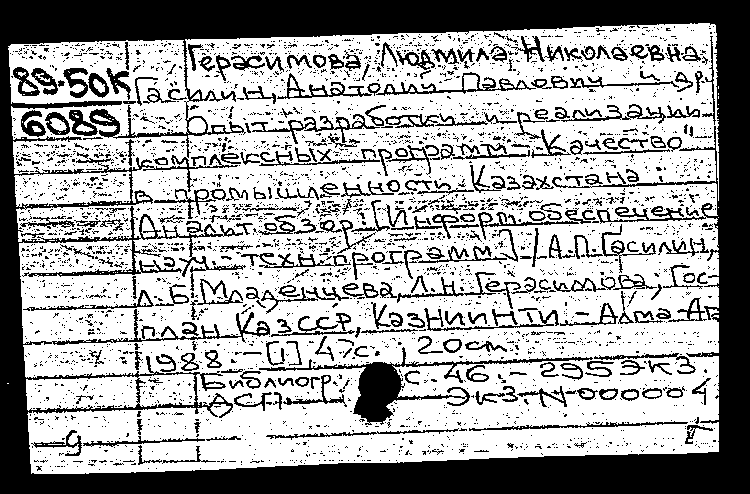 Герасимова, Людмила Николаевна,
89-50К
Гасилин, Анатолий Павлович и др.
6089
Опыт разработки и реализации
комплексных программ „Качество"
в промышленности Казахстана :
Аналит. обзор : [Информ. обеспечение
науч.-техн. программ] / А.П. Гасилин,
Л.Б. Младенцева, Л.Н. Герасимова; Гос-
план КазССР, КазНИИНТИ. - Алма-Ата
1988. - [1], 47с. ; 20см.
Библиогр.: с. 46. - 295 экз.
АСП. Экз. N 000004
9